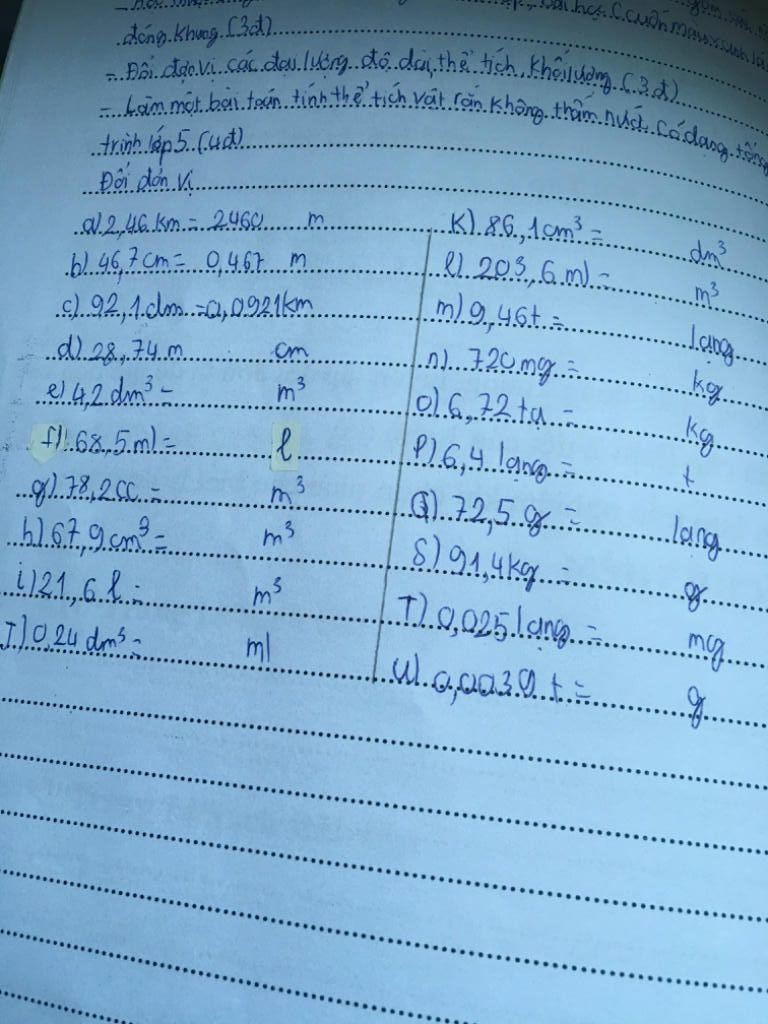 đóng khung (3đ)
- Đổi đơn vị các đại lượng độ dài, thể tích, khối lượng (3đ)
- Làm một bài toán tính thể tích vật rắn không thấm nước có dạng
trình lớp 5 (4đ)
Đổi đơn vị
a) 2,46 km = 2460 m
b) 46,7 cm = 0,467 m
c) 92,1 dm = 0,00921 km
d) 28,74 m cm
e) 4,2 dm³ = m³
f) 68,5 ml = l
g) 78,2 cc = m³
h) 67,9 cm³ = m³
i) 21,6 l = m³
J) 0,24 dm³ = ml
K) 86,1 cm³ = dm³
l) 203,6 ml = m³
m) 9,46 t = lạng
n) 720 mg = kg
o) 6,72 tạ = kg
p) 6,4 lạng = t
Q) 72,5 g = lạng
S) 91,4 kg = g
T) 0,025 lạng = mg
u) 0,0039 t = g